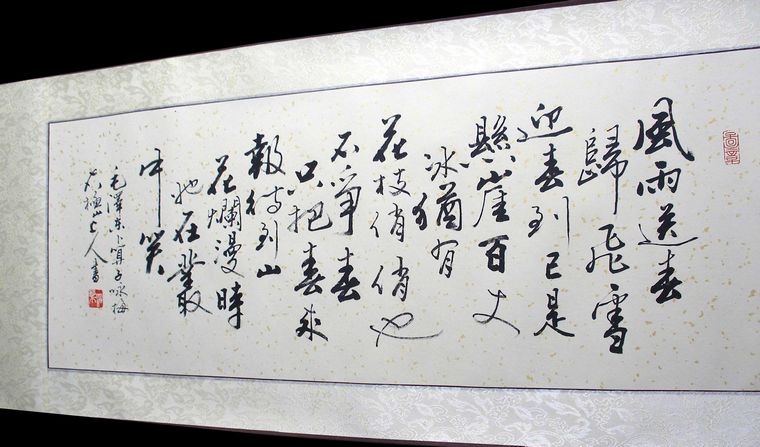 風雨送春
歸飛雪
迎春到已是
懸崖百丈
冰猶有
花枝俏俏也
不爭春
只把春來
報待到山
花爛漫時
她在叢
中笑
毛澤東卜算子咏梅
人書